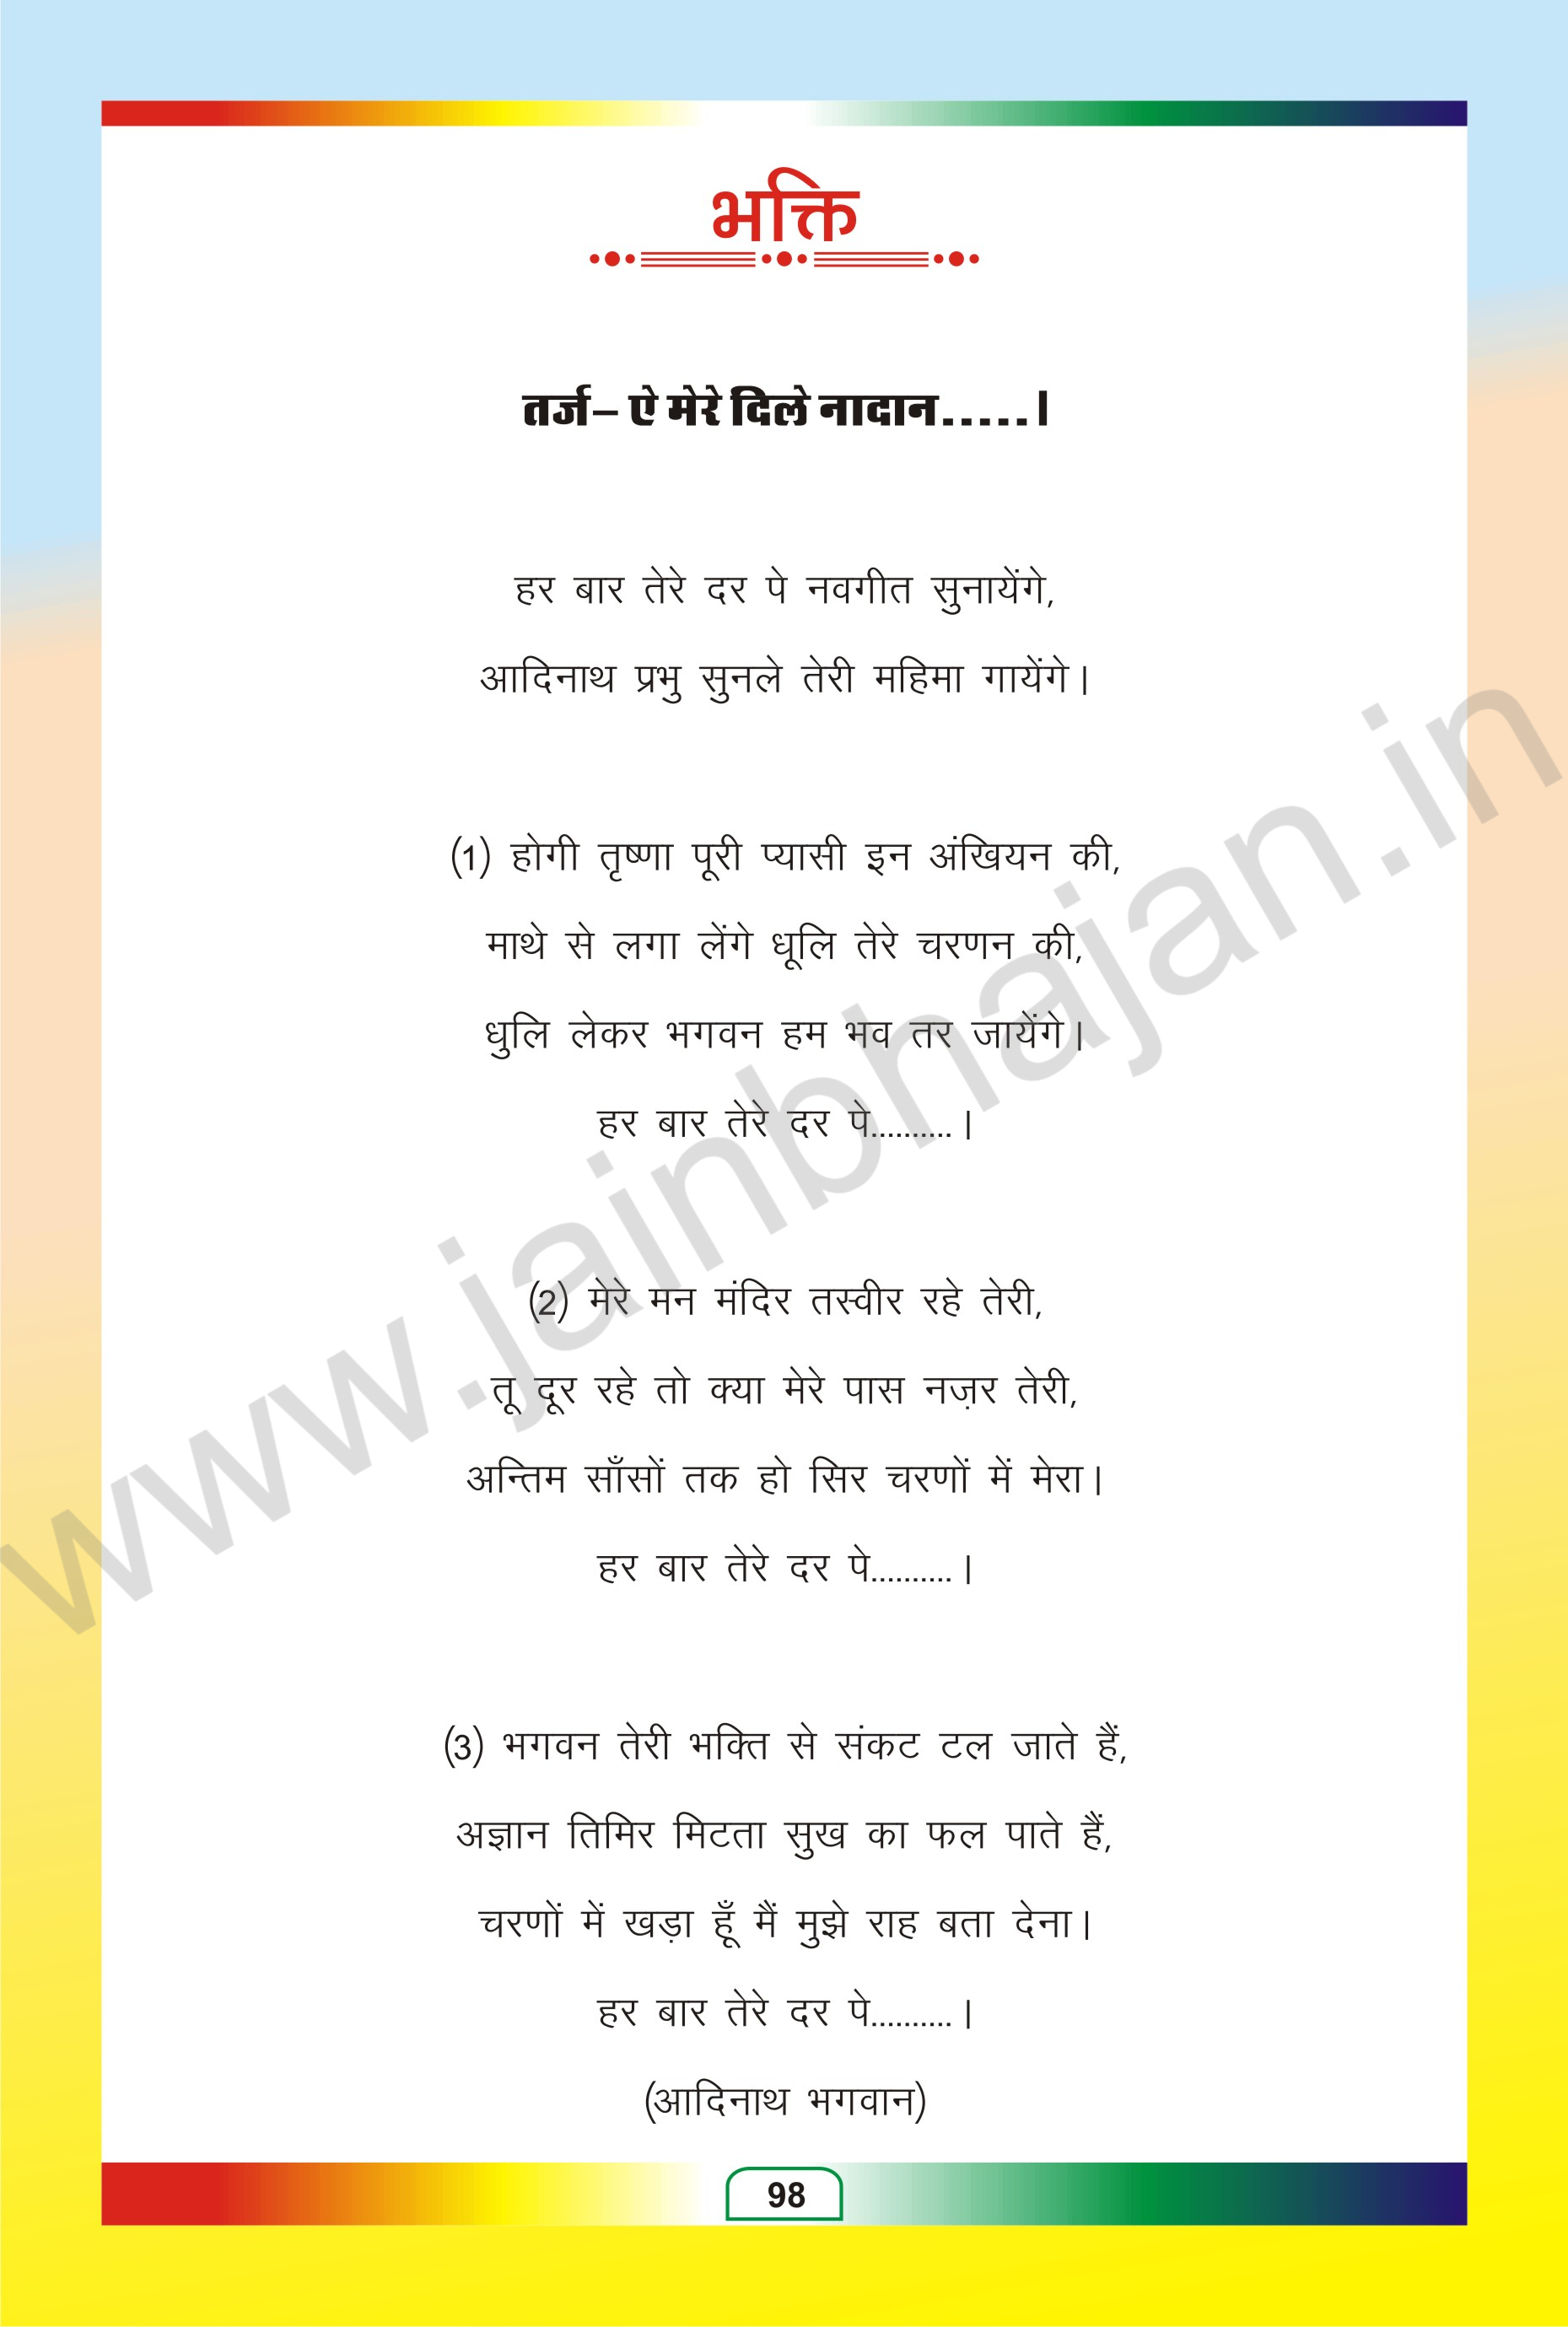 भक्ति
तर्ज– ऐ मेरे दिले नादान.....।
हर बार तेरे दर पे नवगीत सुनायेंगे,
आदिनाथ प्रभु सुनले तेरी महिमा गायेंगे।
(1) होगी तृष्णा पूरी प्यासी इन अंखियन की,
माथे से लगा लेंगे धूलि तेरे चरणन की,
धुलि लेकर भगवन हम भव तर जायेंगे।
हर बार तेरे दर पे..........।
(2) मेरे मन मंदिर तस्वीर रहे तेरी,
तू दूर रहे तो क्या मेरे पास नज़र तेरी,
अन्तिम साँसों तक हो सिर चरणों में मेरा।
हर बार तेरे दर पे..........।
(3) भगवन तेरी भक्ति से संकट टल जाते हैं,
अज्ञान तिमिर मिटता सुख का फल पाते हैं,
चरणों में खड़ा हूँ मैं मुझे राह बता देना।
हर बार तेरे दर पे..........।
(आदिनाथ भगवान)
98
www.jainbhajan.in